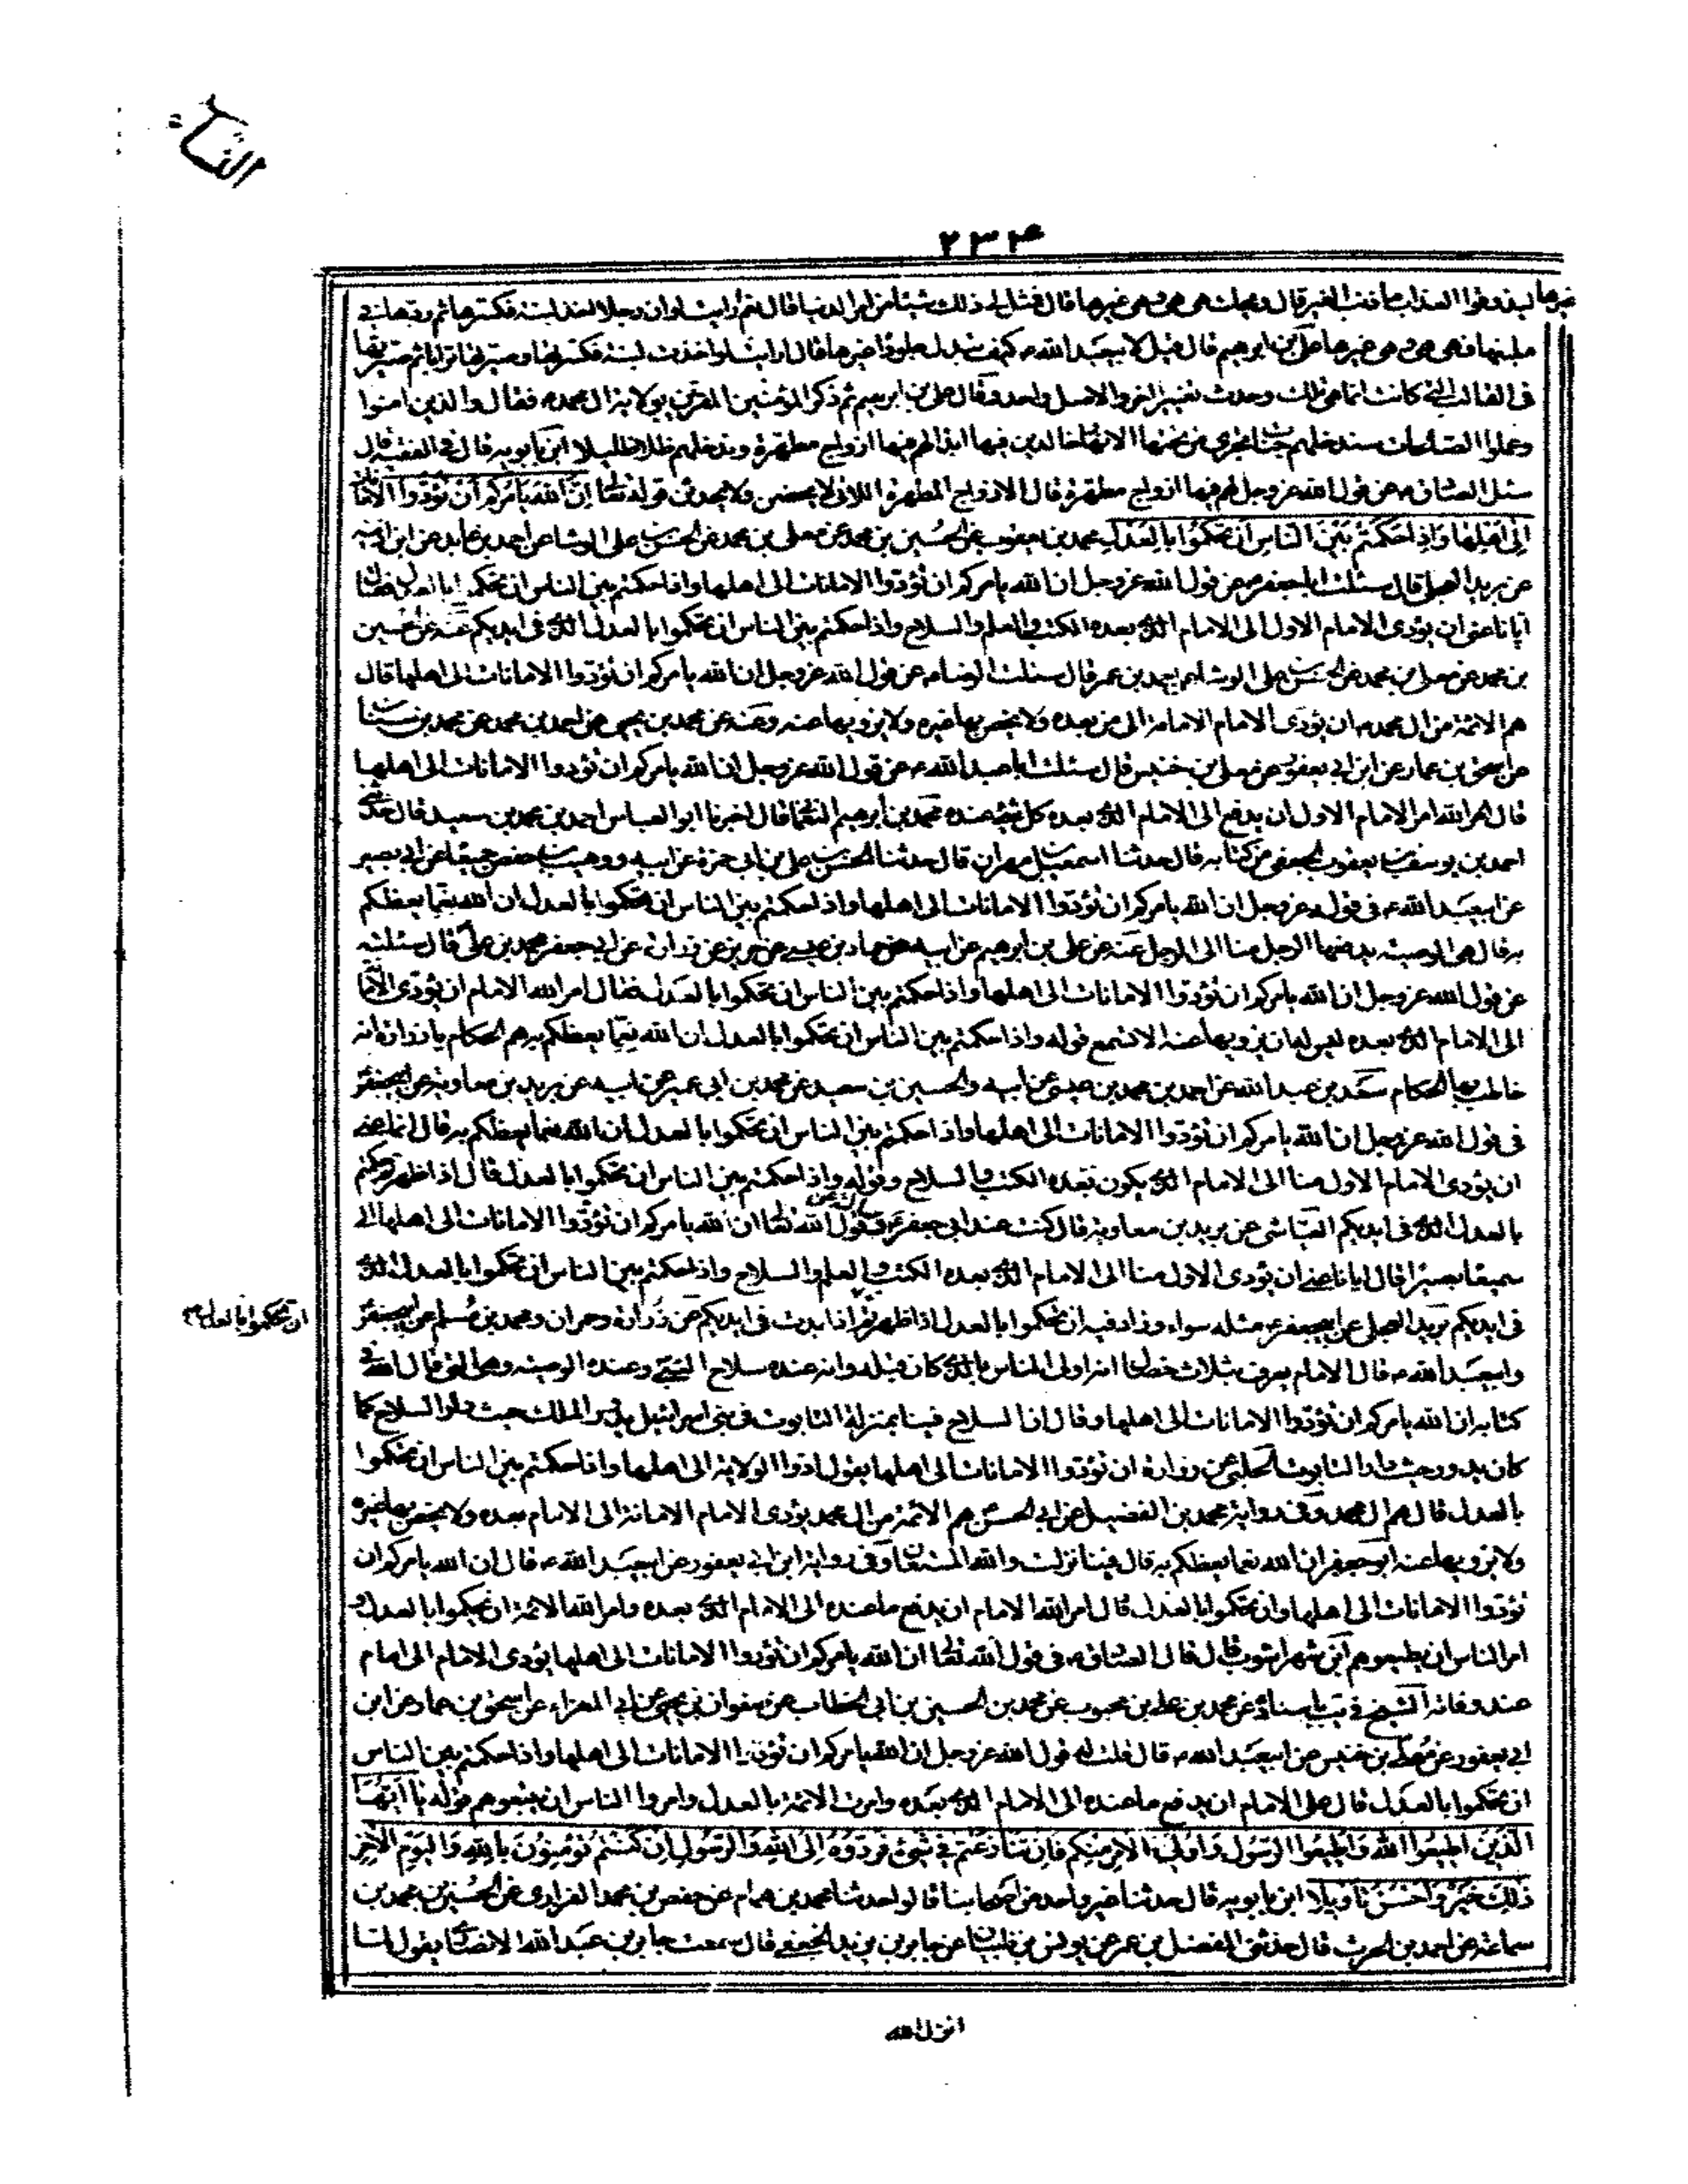 النساء
٢٣٤
غيرها ليذوقوا العذاب ما ذنب الغير قال ويحك هي هي وهي غيرها قال فمثل لي ذلك شيئا من امر الدنيا قال نعم ارايت لو ان رجلا اخذ لبنة فكسرها ثم ردها في
ملبنها فهي هي وهي غيرها علي بن ابرهيم قال قيل لابيعبد الله ع كيف تبدل جلودا غيرها قال ارايت لو اخذت لبنة فكسرتها وصيرتها ترابا ثم ضربتها
في القالب التي كانت انما هي ذلك وحدث تغيير اخر والاصل واحد وقال علي بن ابرهيم ثم ذكر المؤمنين المقرين بولاية ال محمد ع فقال والذين امنوا
وعملوا الصالحات سندخلهم جنات تجري من تحتها الانهار خالدين فيها ابدا لهم فيها ازواج مطهرة وندخلهم ظلا ظليلا ابن بابويه قال في الفقيه قال
سئل الصادق ع عن قول الله عز وجل لهم فيها ازواج مطهرة قال الازواج المطهرة اللاتي لا يحضن ولا يحدثن قوله تعالى اِنَّ اللّهَ يَامُرُكُم اَنْ تُؤَدُّوا الْاَمَانَاتِ
اِلى اَهْلِهَا وَاِذَا حَكَمْتُمْ بَيْنَ النَّاسِ اَنْ تَحْكُمُوا بِالْعَدْلِ محمد بن يعقوب عن الحسين بن محمد عن معلى بن محمد عن الحسن بن علي الوشا عن احمد بن عايذ عن ابن اذينه
عن بريد العجلي قال سئلت اباجعفر ع عن قول الله عز وجل ان الله يامركم ان تؤدوا الامانات الى اهلها واذا حكمتم بين الناس ان تحكموا بالعدل فقال
ايانا عنى ان يؤدى الامام الاول الى الامام الذي بعده الكتب والعلم والسلاح واذا حكمتم بين الناس ان تحكموا بالعدل الذي في ايديكم عنه عن الحسين
بن محمد عن معلى بن محمد عن الحسن بن علي الوشا عن احمد بن عمر قال سئلت الرضا ع عن قول الله عز وجل ان الله يامركم ان تؤدوا الامانات الى اهلها قال
هم الائمة من ال محمد ع ان يؤدى الامام الامامة الى من بعده ولا يخص بها غيره ولا يزويها عنه وعنه عن محمد بن يحيى عن احمد بن محمد عن محمد بن سنان
عن اسحق بن عمار عن ابن ابي يعفور عن معلى بن خنيس قال سئلت اباعبد الله ع عن قول الله عز وجل ان الله يامركم ان تؤدوا الامانات الى اهلها
قال امر الله الامام الاول ان يدفع الى الامام الذي بعده كل شيء عنده محمد بن ابرهيم النعماني قال اخبرنا ابو العباس احمد بن محمد بن سعيد قال حدثني
احمد بن يوسف بن يعقوب الجعفي من كتابه قال حدثنا اسمعيل بن مهران قال حدثنا الحسن بن علي بن ابي حمزة عن ابيه ووهيب بن حفص جميعا عن ابي بصير
عن ابيعبد الله ع في قوله عز وجل ان الله يامركم ان تؤدوا الامانات الى اهلها واذا حكمتم بين الناس ان تحكموا بالعدل ان الله نعما يعظكم
به قال هي الوصية يدفعها الرجل منا الى الرجل عنه عن علي بن ابرهيم عن ابيه عن حماد بن عيسى عن حريز عن زرارة عن ابي جعفر محمد بن علي قال سئلته
عن قول الله عز وجل ان الله يامركم ان تؤدوا الامانات الى اهلها واذا حكمتم بين الناس ان تحكموا بالعدل فقال امر الله الامام ان يؤدى الامانة
الى الامام الذي بعده ليس له ان يزويها عنه الا تسمع قوله واذا حكمتم بين الناس ان تحكموا بالعدل ان الله نعما يعظكم به هم الحكام يا زرارة انه
خاطب بها الحكام سعد بن عبد الله عن احمد بن محمد بن عيسى عن ابيه والحسين بن سعيد عن محمد بن ابي عمير عن ابيه عن بريد بن معاوية عن ابيجعفر
في قول الله عز وجل ان الله يامركم ان تؤدوا الامانات الى اهلها واذا حكمتم بين الناس ان تحكموا بالعدل ان الله نعما يعظكم به قال انما عنى
ان يؤدى الامام الاول منا الى الامام الذي يكون بعده الكتب والسلاح وقوله واذا حكمتم بين الناس ان تحكموا بالعدل قال اذا ظهرتم حكمتم
بالعدل الذي في ايديكم العياشي عن بريد بن معاوية قال كنت عند ابي جعفر ع قول الله تعالى ان الله يامركم ان تؤدوا الامانات الى اهلها الى
سميعا بصيرا قال ايانا عنى ان يؤدى الاول منا الى الامام الذي بعده الكتب والعلم والسلاح واذا حكمتم بين الناس ان تحكموا بالعدل الذي
في ايديكم بريد العجلي عن ابيجعفر ع مثله سواء وزاد فيه ان تحكموا بالعدل اذا ظهرتم اذا بدت في ايديكم عن زرارة وحمران ومحمد بن مسلم عن ابيجعفر
ان تحكموا بالعدل
وابيعبد الله ع قال الامام يعرف بثلاث خصال انه اولى الناس بالذي كان قبله وانه عنده سلاح النبي وعنده الوصية وهي التي قال الله في
كتابه ان الله يامركم ان تؤدوا الامانات الى اهلها وقال ان السلاح فينا بمنزلة التابوت في بني اسرائيل يدور الملك حيث دار السلاح كما
كان يدور حيث دار التابوت الحلبي عن زرارة ان تؤدوا الامانات الى اهلها يقول ادوا الولاية الى اهلها واذا حكمتم بين الناس ان تحكموا
بالعدل قال هم ال محمد وفي رواية محمد بن الفضيل عن ابي الحسن هم الائمة من ال محمد يؤدى الامام الامانة الى الامام بعده ولا يخص بها غيره
ولا يزويها عنه ابو جعفر ان الله نعما يعظكم به قال فينا نزلت والله المستعان وفي رواية ابن ابي يعفور عن ابيعبد الله ع قال ان الله يامركم ان
تؤدوا الامانات الى اهلها وان تحكموا بالعدل قال امر الله الامام ان يدفع ما عنده الى الامام الذي بعده وامر الله الائمة ان يحكموا بالعدل و
امر الناس ان يطيعوهم ابن شهراشوب قال قال الصادق ع في قول الله تعالى ان الله يامركم ان تؤدوا الامانات الى اهلها يؤدى الامام الى امام
عند وفاته الشيخ في يب باسناده عن محمد بن علي بن محبوب عن محمد بن الحسين بن ابي الخطاب عن صفوان بن يحيى عن ابي المعزاء عن اسحق بن عمار عن ابن
ابي يعفور عن معلى بن خنيس عن ابيعبد الله ع قال قلت له قول الله عز وجل ان الله يامركم ان تؤدوا الامانات الى اهلها واذا حكمتم بين الناس
ان تحكموا بالعدل قال على الامام ان يدفع ما عنده الى الامام الذي بعده وامرت الائمة بالعدل وامروا الناس ان يتبعوهم قوله يَا اَيُّهَا
الَّذِينَ اَطِيعُوا اللّهَ وَاَطِيعُوا الرَّسُولَ وَاُولِي الْاَمْرِ مِنْكُمْ فَاِنْ تَنَازَعْتُمْ فِي شَيْءٍ فَرُدُّوهُ اِلَى اللّهِ وَالرَّسُولِ اِنْ كُنْتُمْ تُؤْمِنُونَ بِاللّهِ وَالْيَوْمِ الْاخِرِ
ذلِكَ خَيْرٌ وَاَحْسَنُ تَاْوِيلًا ابن بابويه قال حدثنا غير واحد من اصحابنا قالوا حدثنا محمد بن همام عن جعفر بن محمد الفزاري عن الحسين بن محمد بن
سماعة عن احمد بن الحرث قال حدثني المفضل بن عمر عن يونس بن ظبيان عن جابر بن يزيد الجعفي قال سمعت جابر بن عبد الله الانصاري يقول لما
انزل الله